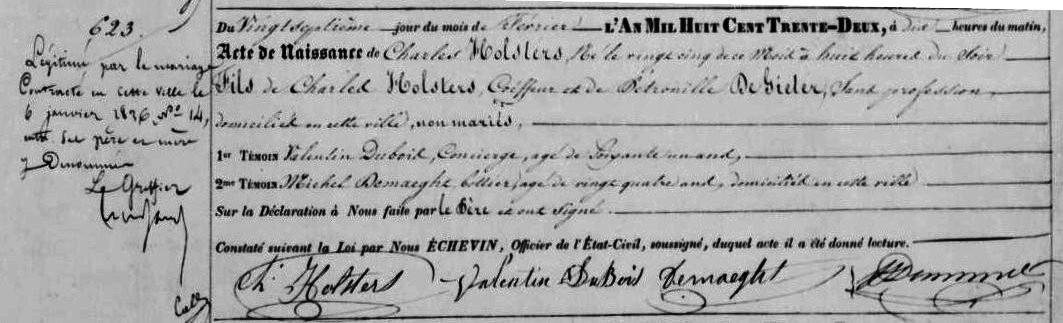 623.
Légitimé par le mariage
Contracté en cette ville le
6 janvier 1836, No 14,
entre ses père et mère
y Dénommés
Le Greffier
Du Vingt septième jour du mois de Février L'AN MIL HUIT CENT TRENTE-DEUX, à dix heures du matin,
Acte de Naissance de Charles Holsters, Né le vingt cinq de ce Mois à huit heures du Soir
Fils de Charles Holsters, Coiffeur et de Pétronille De Gieter, Sans profession,
domiciliés en cette ville, non mariés,
1er TÉMOIN Valentin Dubois, Concierge, âgé de Soixante un ans,
2me TÉMOIN Michel Demaeght, sellier, âgé de vingt quatre ans, domiciliés en cette ville
Sur la Déclaration à Nous faite par le Père et ont Signé
Constaté suivant la Loi par Nous ÉCHEVIN, Officier de l'État-Civil, soussigné, duquel acte il a été donné lecture.
Ch Holsters Valentin DuBois Demaeght